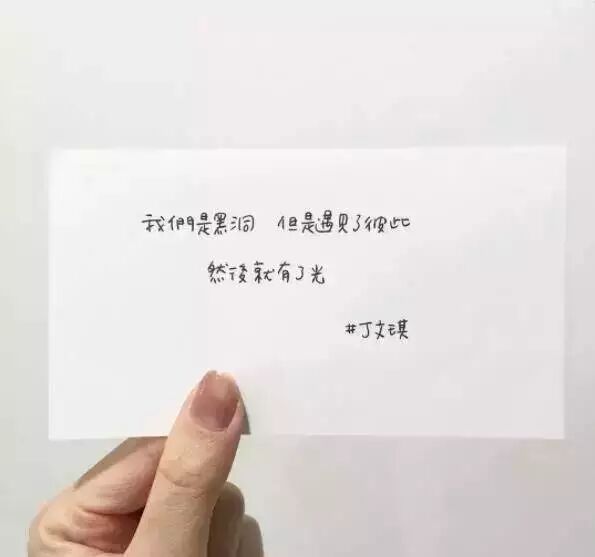 我們是黑洞 但是遇見了彼此
然後就有了光
#丁文琪